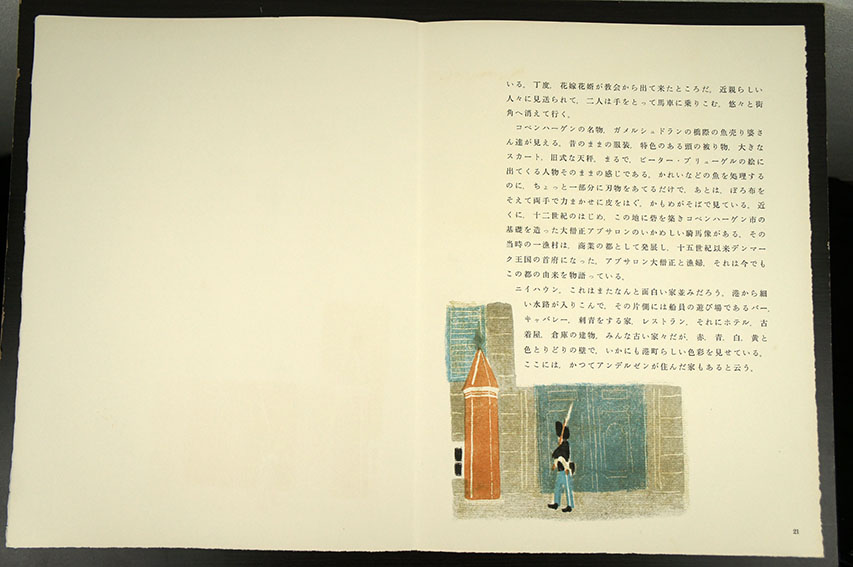 いる。丁度，花嫁花婿が教会から出て来たところだ。近親らしい
人々に見送られて，二人は手をとって馬車に乗りこむ。悠々と街
角へ消えて行く。
コペンハーゲンの名物，ガメルシュドランの橋際の魚売り婆さ
ん達が見える。昔のままの服装，特色のある頭の被り物，大きな
スカート，旧式な天秤，まるで，ピーター・ブリューゲルの絵に
出てくる人物そのままの感じである。かれいなどの魚を処理する
のに，ちょっと一部分に刃物をあてるだけで，あとは，ぼろ布を
そえて両手で力まかせに皮をはぐ。かもめがそばで見ている。近
くに，十二世紀のはじめ，この地に砦を築きコペンハーゲン市の
基礎を造った大僧正アブサロンのいかめしい騎馬像がある。その
当時の一漁村は，商業の都として発展し，十五世紀以来デンマー
ク王国の首府になった。アブサロン大僧正と漁婦，それは今でも
この都の由来を物語っている。
ニイハウン，これはまたなんと面白い家並みだろう。港から細
い水路が入りこんで，その片側には船員の遊び場であるバー，
キャバレー，刺青をする家，レストラン，それにホテル，古
着屋，倉庫の建物，みんな古い家々だが，赤，青，白，黄と
色とりどりの壁で，いかにも港町らしい色彩を見せている。
ここには，かつてアンデルゼンが住んだ家もあると云う。
21